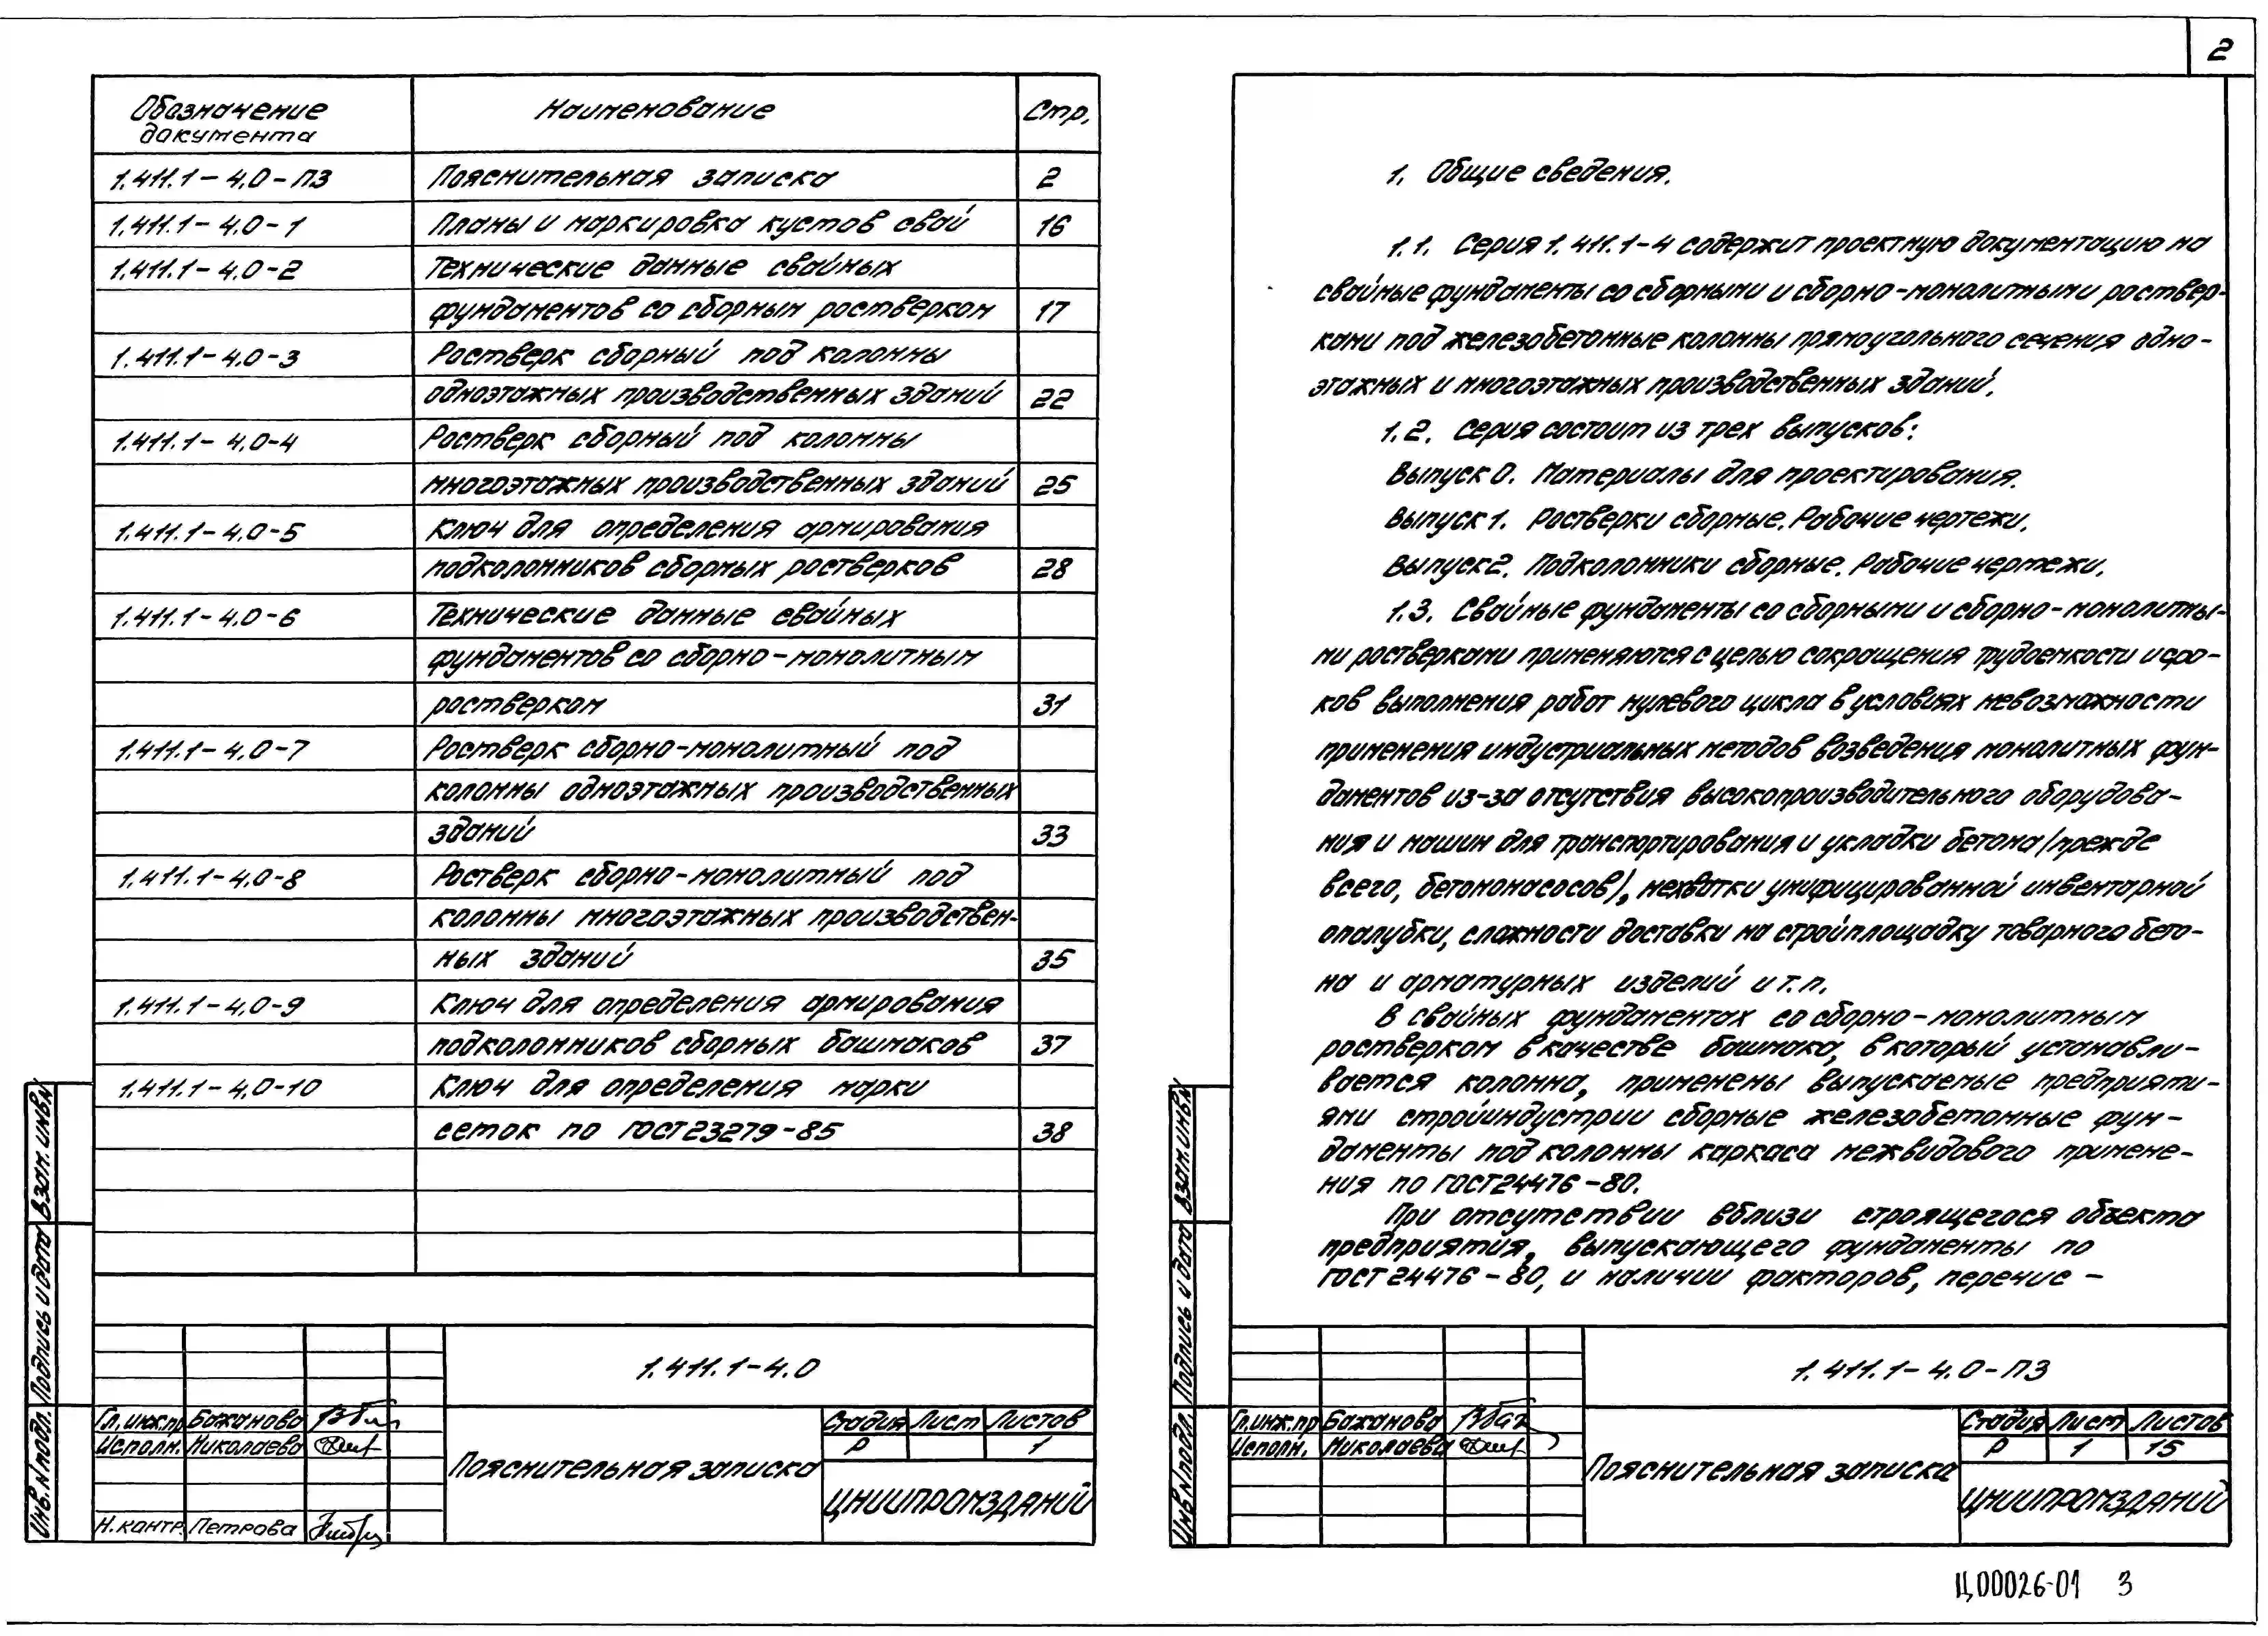 2
Обозначение документа Наименование Стр.
1.411.1-4.0-ПЗ Пояснительная записка 2
1.411.1-4.0-1 Планы и маркировка кустов свай 16
1.411.1-4.0-2 Технические данные свайных
фундаментов со сборным ростверком 17
1.411.1-4.0-3 Ростверк сборный под колонны
одноэтажных производственных зданий 22
1.411.1-4.0-4 Ростверк сборный под колонны
многоэтажных производственных зданий 25
1.411.1-4.0-5 Ключ для определения армирования
подколонников сборных ростверков 28
1.411.1-4.0-6 Технические данные свайных
фундаментов со сборно-монолитным
ростверком 31
1.411.1-4.0-7 Ростверк сборно-монолитный под
колонны одноэтажных производственных
зданий 33
1.411.1-4.0-8 Ростверк сборно-монолитный под
колонны многоэтажных производствен-
ных зданий 35
1.411.1-4.0-9 Ключ для определения армирования
подколонников сборных башмаков 37
1.411.1-4.0-10 Ключ для определения марки
сеток по ГОСТ 23279-85 38
1.411.1-4.0
Гл.инж.пр Бажанова
Исполн. Николаева
Н.контр. Петрова
Пояснительная записка
Стадия Лист Листов
Р 1
ЦНИИПРОМЗДАНИЙ
Взам.инв.№
Подпись и дата
Инв.№ подл.
1. Общие сведения.
1.1. Серия 1.411.1-4 содержит проектную документацию на
свайные фундаменты со сборными и сборно-монолитными роствер-
ками под железобетонные колонны прямоугольного сечения одно-
этажных и многоэтажных производственных зданий.
1.2. Серия состоит из трех выпусков:
Выпуск 0. Материалы для проектирования.
Выпуск 1. Ростверки сборные. Рабочие чертежи.
Выпуск 2. Подколонники сборные. Рабочие чертежи.
1.3. Свайные фундаменты со сборными и сборно-монолитны-
ми ростверками применяются с целью сокращения трудоемкости и сро-
ков выполнения работ нулевого цикла в условиях невозможности
применения индустриальных методов возведения монолитных фун-
даментов из-за отсутствия высокопроизводительного оборудова-
ния и машин для транспортирования и укладки бетона (прежде
всего, бетононасосов), нехватки унифицированной инвентарной
опалубки, сложности доставки на стройплощадку товарного бето-
на и арматурных изделий и т.п.
В свайных фундаментах со сборно-монолитным
ростверком в качестве башмака, в который устанавли-
вается колонна, применены выпускаемые предприяти-
ями стройиндустрии сборные железобетонные фун-
даменты под колонны каркаса межвидового примене-
ния по ГОСТ 24476-80.
При отсутствии вблизи строящегося объекта
предприятия, выпускающего фундаменты по
ГОСТ 24476-80, и наличии факторов, перечис-
1.411.1-4.0-ПЗ
Гл.инж.пр Бажанова
Исполн. Николаева
Пояснительная записка
Стадия Лист Листов
Р 1 15
ЦНИИПРОМЗДАНИЙ
Взам.инв.№
Подпись и дата
Инв.№ подл.
Ц00026-01 3